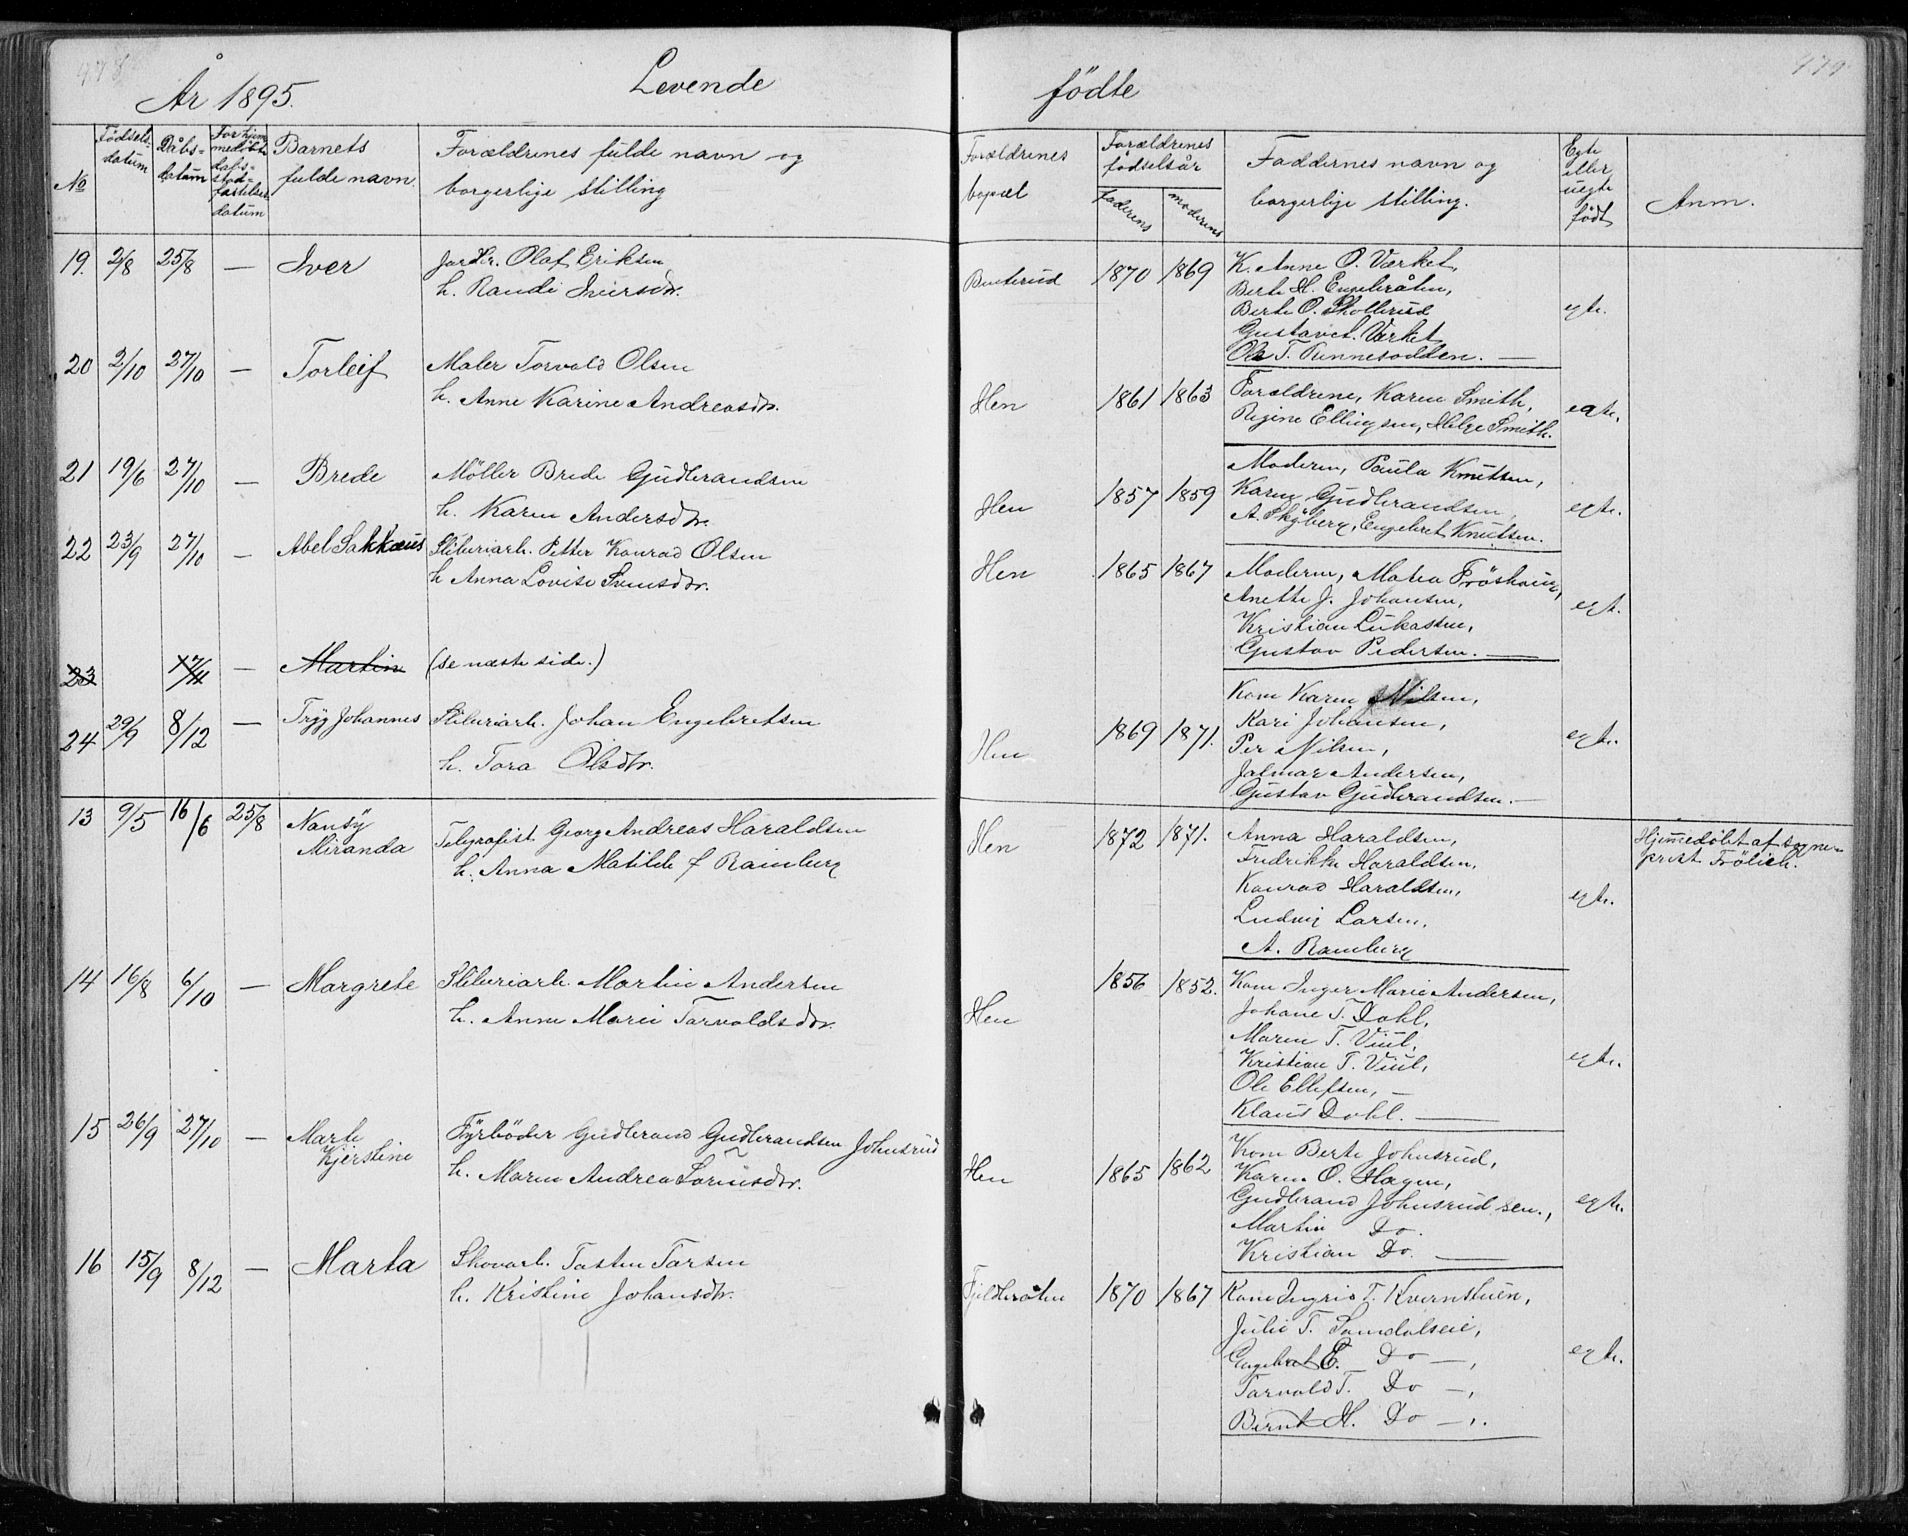 478
479
År 1895.
Levende
födte
No
Födsels-
datum
Dåbs-
datum
For hjem-
medöbte
dåbs-
stad-
fæstelses
datum
Barnets
fulde navn
Forældrenes fulde navn og
borgerlige stilling
Forældrenes
bopæl
Forældrenes
födselsår
faderens
moderens
Faddernes navn og
borgerlige stilling.
Egte
eller
uegte
födt
Anm.
19. 2/8 25/8 — Iver Olaf Eriksen
h. Randi Iversdtr.
1870 1869 K. Anne O. Værket,
Berte H. Engebråten,
Berte O.
Værket
Ole T. —
egte.
20 2/10 27/10 — Torleif Maler Torvald Olsen
h. Anne Karine Andreasdtr.
Hen 1861 1863 Forældrene, Karen Smith,
Regine Ellingsen, Helge Smith.
egte.
21 19/6 27/10 — Brede Möller Brede Gudbrandsen
h. Karen Andersdtr.
Hen 1857 1859 Moderen, Paula Knutsen,
Karen Gudbrandsen,
A. Skjöberg, Engebret Knutsen.
egte.
22 23/9 27/10 — Abel Sakkæus Sliberiarb. Petter Konrad Olsen
h. Anna Lovise Svensdtr.
Hen 1865 1867 Moderen, Matea Fröshaug,
Anette J. Johansen,
Kristian Lukassen,
Gustav Pedersen. —
egt.
23 17/11 — Martin (se næste side.)
24 29/9 8/12 — Tryg Johannes Sliberiarb. Johan Engebretsen
h. Tora Olsdtr.
Hen 1869 1871. Kone Karen Nilsen,
Kari Johansen,
Per Nilsen,
Jalmar Andersen,
Gustav Gudbrandsen. —
egte.
13 9/5 16/6 25/8 Nansy
Miranda
Telegrafist. Georg Andreas Haraldsen
h. Anna Matilde f. Ramberg
Hen 1872 1871. Anna Haraldsen,
Fredrikke Haraldsen,
Konrad Haraldsen,
Ludvig Larsen,
A. Ramberg
egte.
Hjemmedöbt af sogne-
prest Frölich.
14 16/8 6/10 — Margrete Sliberiarb. Martin Andersen
h. Anne Marie Tarvaldsdtr.
Hen 1856 1852. Kone Inger Marie Andersen,
Johane T. Dahl,
Maren T. Viul,
Kristian T. Viul,
Ole Ellefsen, —
Klaus Dahl. —
egte.
15 26/9 27/10 — Marte
Kjerstine
Fyrböder Gudbrand Gudbrandsen Johnsrud
h. Maren Andrea Sörensdtr.
Hen 1865 1862 Kone Berte Johnsrud,
Karen O. Hagen,
Gudbrand Johnsrud sen.,
Martin Do.
Kristian Do. —
egte.
16 15/9 8/12 — Marta Skovarb. Tosten Tarsen
h. Kristine Johansdtr.
Fjeldbråten 1870 1867 Kone Ingrid T. Kvernstuen,
Julie T. Samdalseie,
Engebret E. — Do —,
Tarvald T. Do —,
Bernt H. Do —,.
egte.